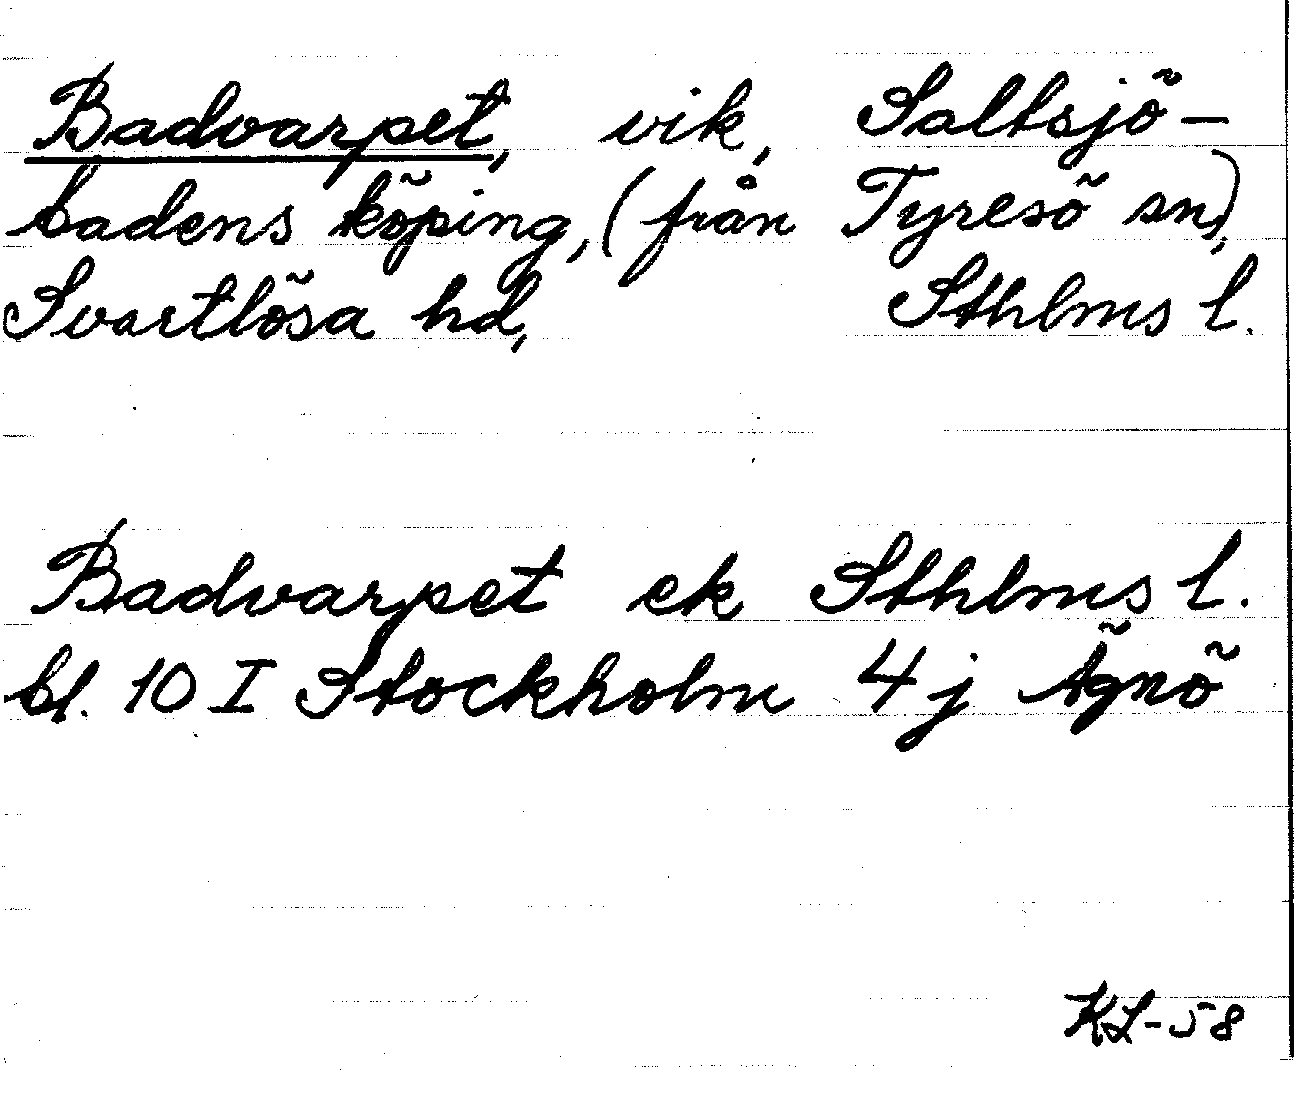 Badvarpet, vik, Saltsjö-
badens köping, (från Tyresö sn),
Svartlösa hd, Sthlms l.
Badvarpet ek Sthlms l.
bl. 10 I Stockholm 4 j Ägnö
KL-58